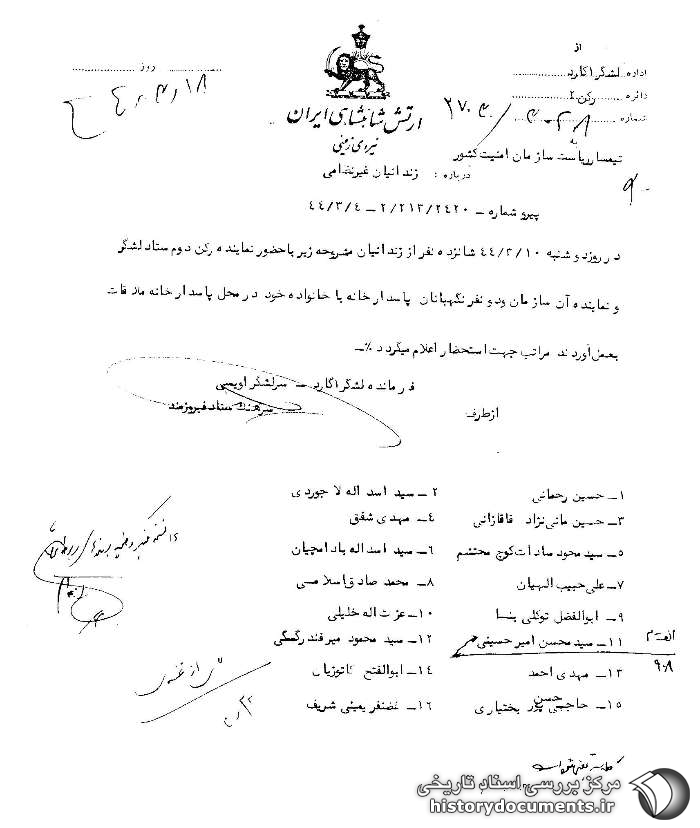 از
اداره لشگر ۱ گارد
دائره رکن ۲
شماره
روز
ارتش شاهنشاهی ایران
نیروی زمینی
به
تیمسار ریاست سازمان امنیت کشور
درباره : زندانیان غیرنظامی
پیرو شماره – ۲/۲۱۳/۲۴۲۰ – ۴۴/۳/۴
در روز دوشنبه ۴۴/۳/۱۰ شانزده نفر از زندانیان مشروحه زیر با حضور نماینده رکن دوم ستاد لشگر
و نماینده آن سازمان و دو نفر نگهبانان پاسدارخانه با خانواده خود در محل پاسدارخانه ملاقات
بعمل آوردند مراتب جهت استحضار اعلام میگردد ٪ –
فرمانده لشگر ۱ گارد – سرلشگر اویسی
از طرف سرهنگ ستاد فیروزمند
۱– حسین رحمانی ۲– سید اسداله لاجوردی
۳– حسین مانی نژاد قاقازانی ۴– مهدی شفق
۵– سید محمود سادات کوچ محتشم ۶– سید اسداله بادامچیان
۷– علی حبیب الهیان ۸– محمد صادق اسلامی
۹– ابوالفضل توکلی بنسا ۱۰– عزت اله خلیلی
۱۱– سید محسن امیرحسینی ۱۲– سید محمود میرفندرسگی
۱۳– مهدی احمد ۱۴– ابوالفتح کاتوزیان
۱۵– حاجی حسن پور بختیاری ۱۶– غضنفر یمینی شریف
۹۰۸
مرکز بررسی اسناد تاریخی
historydocuments.ir